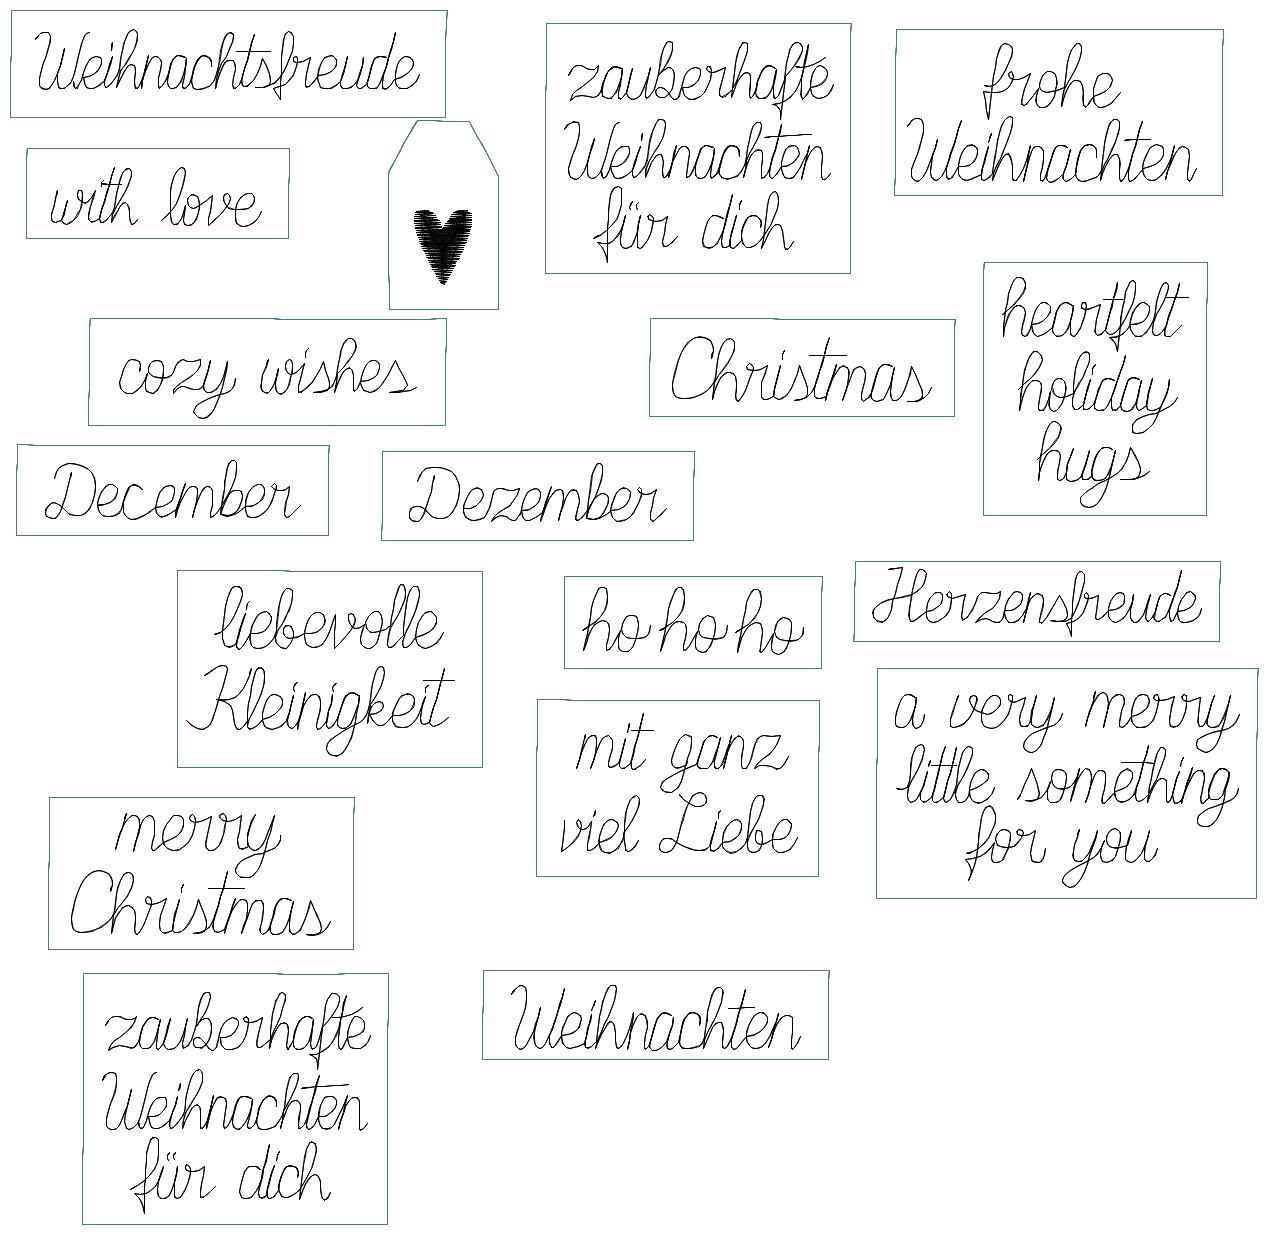 Weihnachtsfreude
zauberhafte
Weihnachten
für dich
frohe
Weihnachten
with love
cozy wishes
Christmas
heartfelt
holiday
hugs
December
Dezember
liebevolle
Kleinigkeit
ho ho ho
Herzensfreude
mit ganz
viel Liebe
a very merry
little something
for you
merry
Christmas
zauberhafte
Weihnachten
für dich
Weihnachten